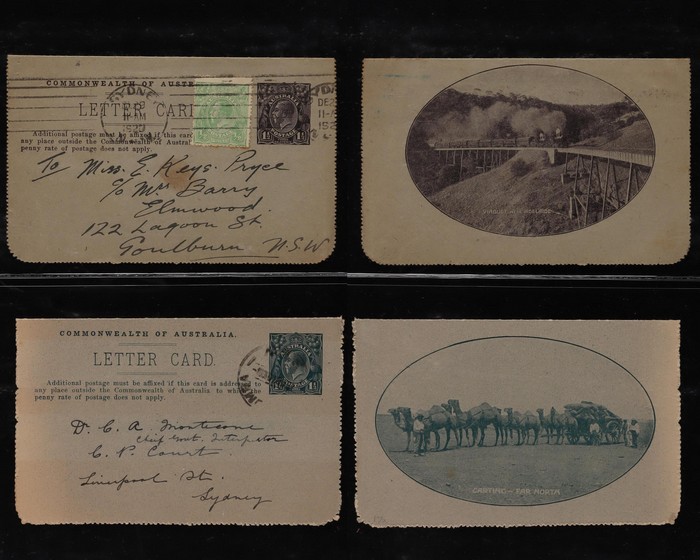 COMMONWEALTH OF AUSTR
LETTER CARD
Additional postage must be affixed if this card
any place outside the Commonwealth of Austral
penny rate of postage does not apply.
SYDNEY
To Miss. E. Keys. Pryce
c/o Mrs Barry
Elmwood.
122 Lagoon St.
Goulburn N.S.W
VIADUCT NEAR ADELAIDE
COMMONWEALTH OF AUSTRALIA.
LETTER CARD.
Additional postage must be affixed if this card is addressed to
any place outside the Commonwealth of Australia to which the
penny rate of postage does not apply.
AUSTRALIA
1½
D. C. A.
Chief Govt. Interpeter
C. P. Court.
Liverpool St.
Sydney
CARTING — FAR NORTH